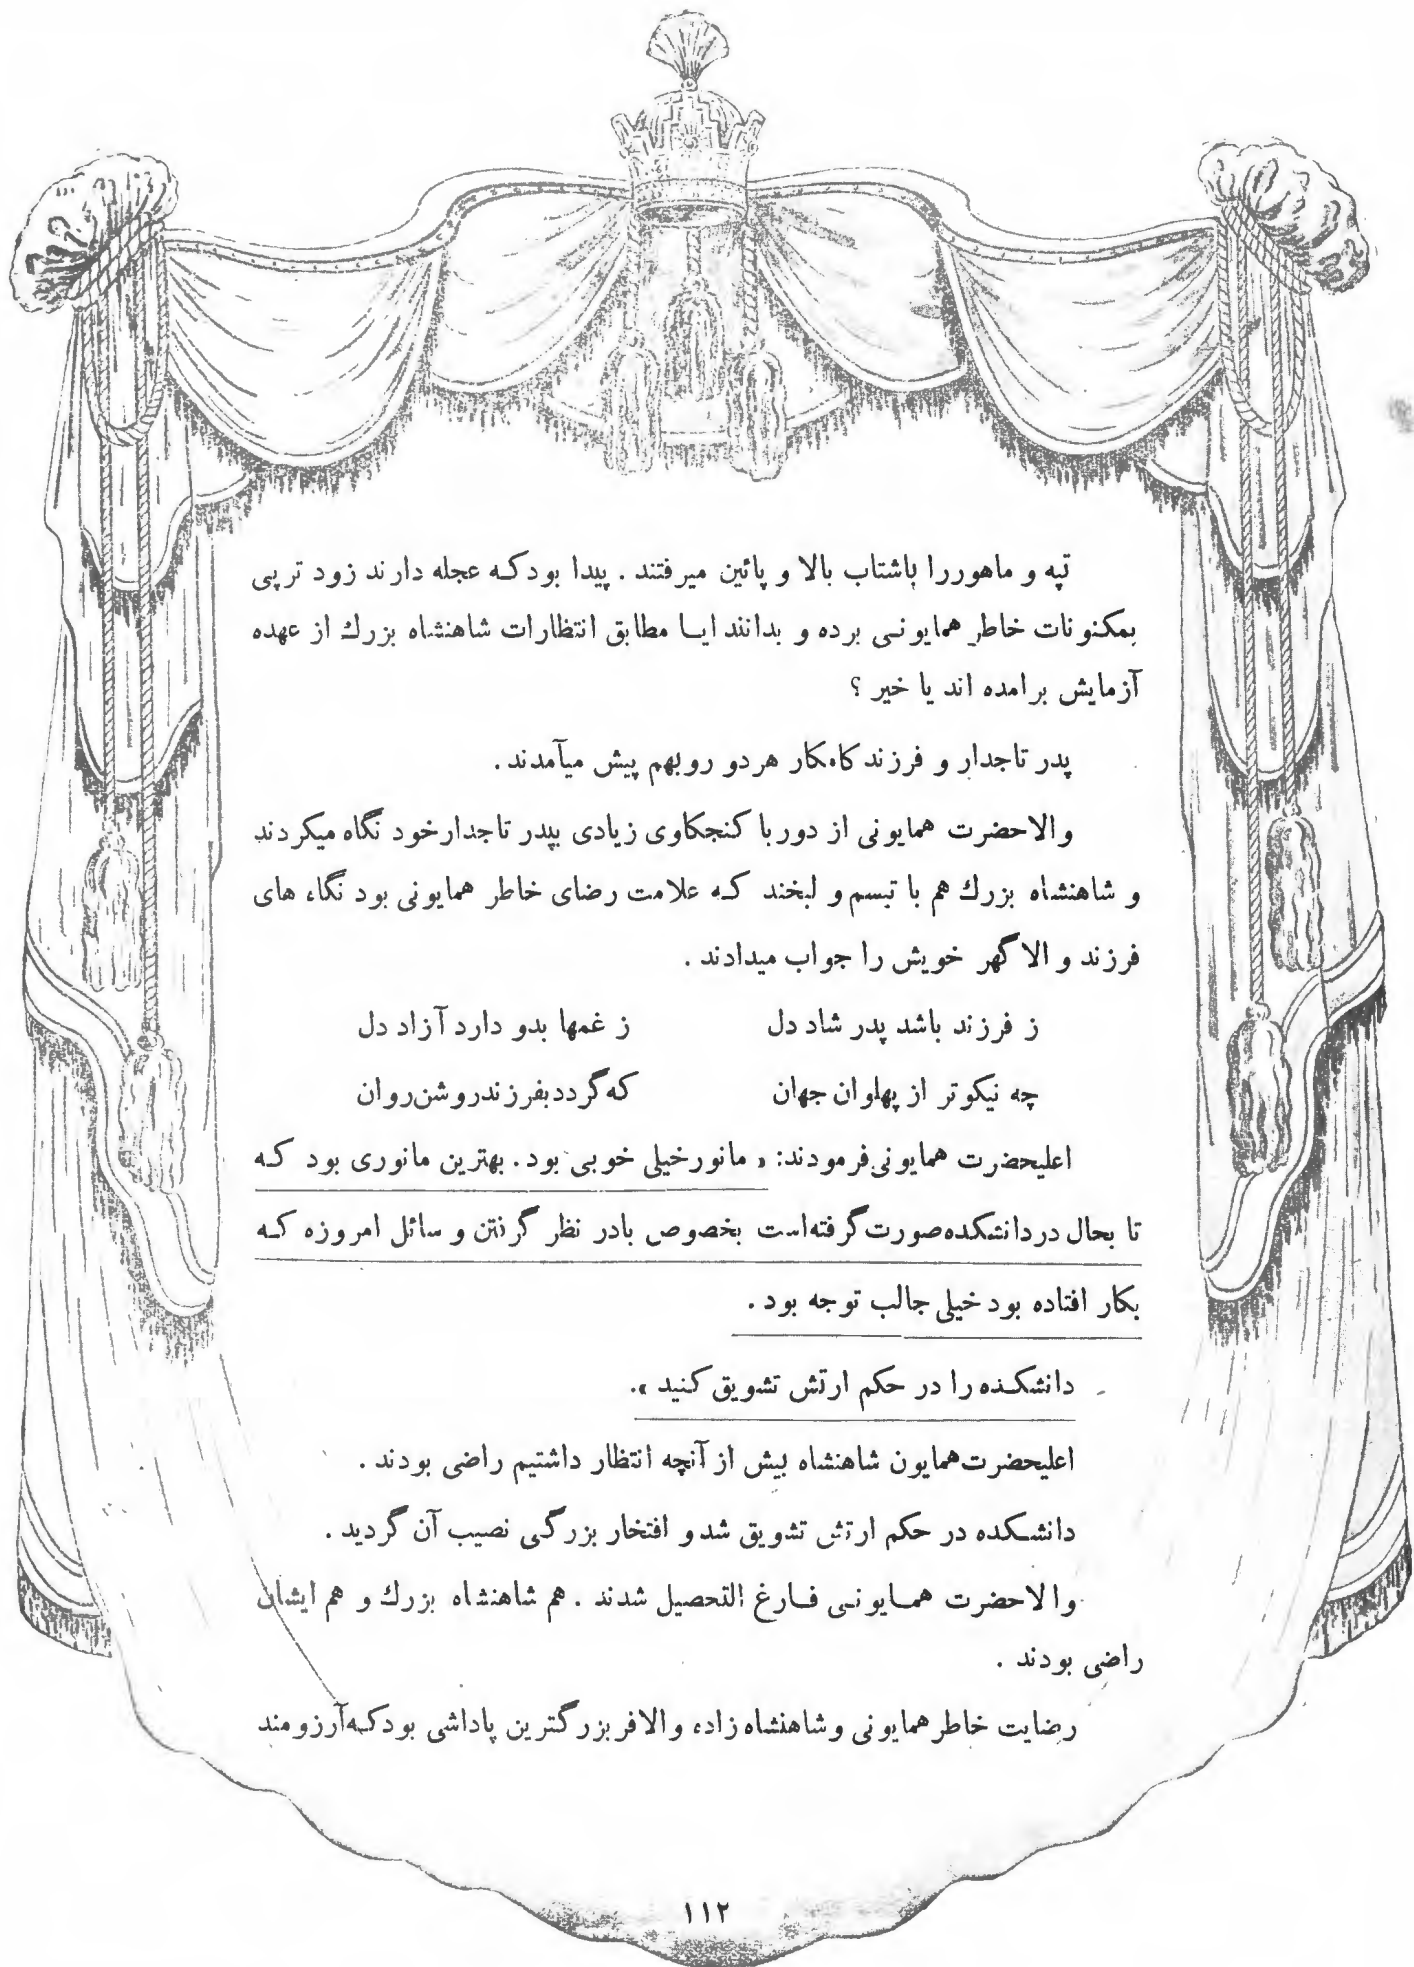 تپه و ماهوررا باشتاب بالا و پائین میرفتند . پیدا بودکه عجله دارند زود تر پی
بمکنونات خاطر همایونی برده و بدانند ایا مطابق انتظارات شاهنشاه بزرك از عهده
آزمایش برامده اند یا خیر ؟
پدر تاجدار و فرزند کامکار هردو روبهم پیش میآمدند .
والاحضرت همایونی از دور با کنجکاوی زیادی بپدر تاجدارخود نگاه میکردند
و شاهنشاه بزرك هم با تبسم و لبخند که علامت رضای خاطر همایونی بود نگاه های
فرزند والاگهر خویش را جواب میدادند .
ز فرزند باشد پدر شاد دل ز غمها بدو دارد آزاد دل
چه نیکوتر از پهلوان جهان که گردد بفرزند روشن روان
اعلیحضرت همایونی فرمودند: « مانورخیلی خوبی بود . بهترین مانوری بود که
تا بحال دردانشکده صورت گرفته است بخصوص بادر نظر گرفتن وسائل امروزه که
بکار افتاده بود خیلی جالب توجه بود .
دانشکده را در حکم ارتش تشویق کنید ».
اعلیحضرت همایون شاهنشاه بیش از آنچه انتظار داشتیم راضی بودند .
دانشکده در حکم ارتش تشویق شد و افتخار بزرگی نصیب آن گردید .
والاحضرت همایونی فارغ التحصیل شدند . هم شاهنشاه بزرك و هم ایشان
راضی بودند .
رضایت خاطر همایونی و شاهنشاه زاده والافر بزرگترین پاداشی بودکه آرزومند
۱۱۲